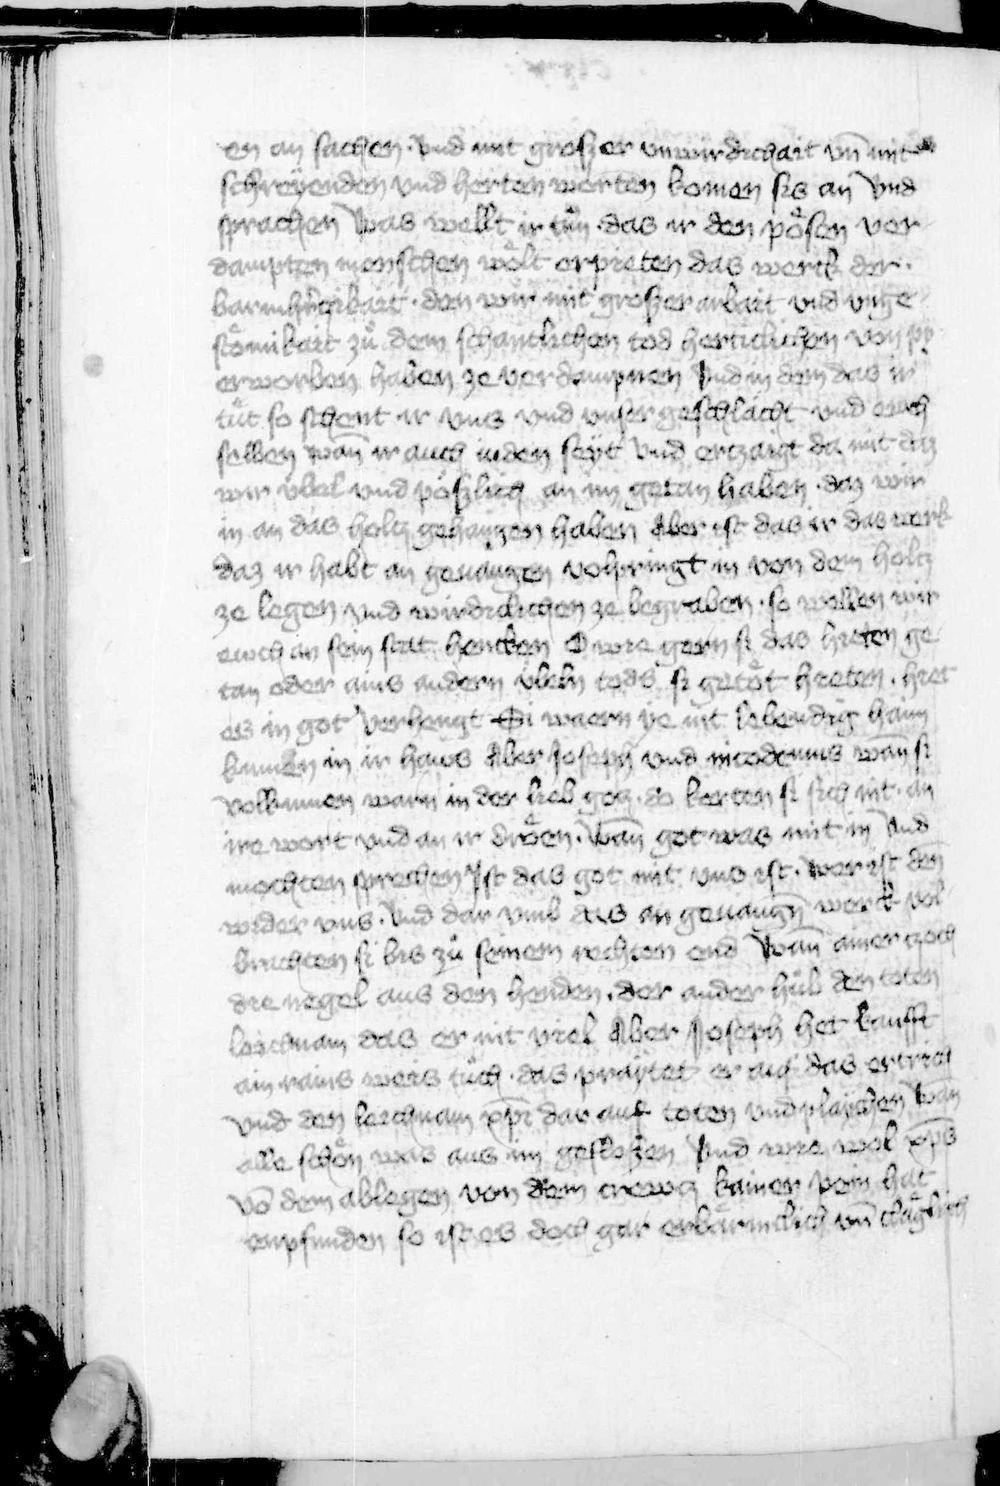 en an sachen. Vnd mit groſzer vnwirdichait vn̄ mit
schreÿenden vnd herten worten komen sis an Vnd
sprachen Was wellt ir tůn. das ir den pöſen ver
dampten menschen wölt erpieten das werck der.
barmhr̄czikait. den wir mit groſzer arbait vnd vnge
stömikait zů dem schantlichen tod herticlichen von pÿ
erworben haben ze verdampnen Vnd in dem das ir
tüt so schent ir vns vnd vnser geschlächt vnd euch
selben wan̄ ir auch iuden seÿt Vnd erczaigt da mit daz
wir übel vnd pöſzlich an im getan haben. daz wir
in an das holcz gehangen haben Aber ist das ir das werk
daz ir habt an geuangen volpringt in von dem holcz
ze legen vnd wirdiclichen ze begraben. so wellen wir
ewch an sein stat hencken O wie gern si das hieten ge
tan oder ains andern übeln tods si getöt hieten. hiet
es in got verhengt Si waern ÿe nit lebendig haim
kumen in ir haws Aber Joseph vnd nicodemus wan̄ si
vollkumen warn in der lieb gocz. do kerten si sich nit. an
ire wort vnd an ir dröen. wan̄ got was mit in̄ Vnd
mochten sprechen Ist das got mit vns ist. wer ist den̄
wider vns. Vnd dar vmb das an geuangn̄ werck vol
brachten si bis zů seinem rechten end Wan̄ ainer zoch
die negel aus den henden. der ander hůb den toten
leichnam das er nit viel Aber Joseph het kaufft
ain rains weis tůch. das praÿtet er auf das ertrich
vnd den leichnam xp̄i dar auf toten vnd plaÿchen Wan̄
alle schön was aus im gefloſzen Vnd wie wol xp̄s
vō dem ablegen von dem crewcz kainen pein hat
enpfunden so ist es doch gar erbärmclich vn̄ cläglich